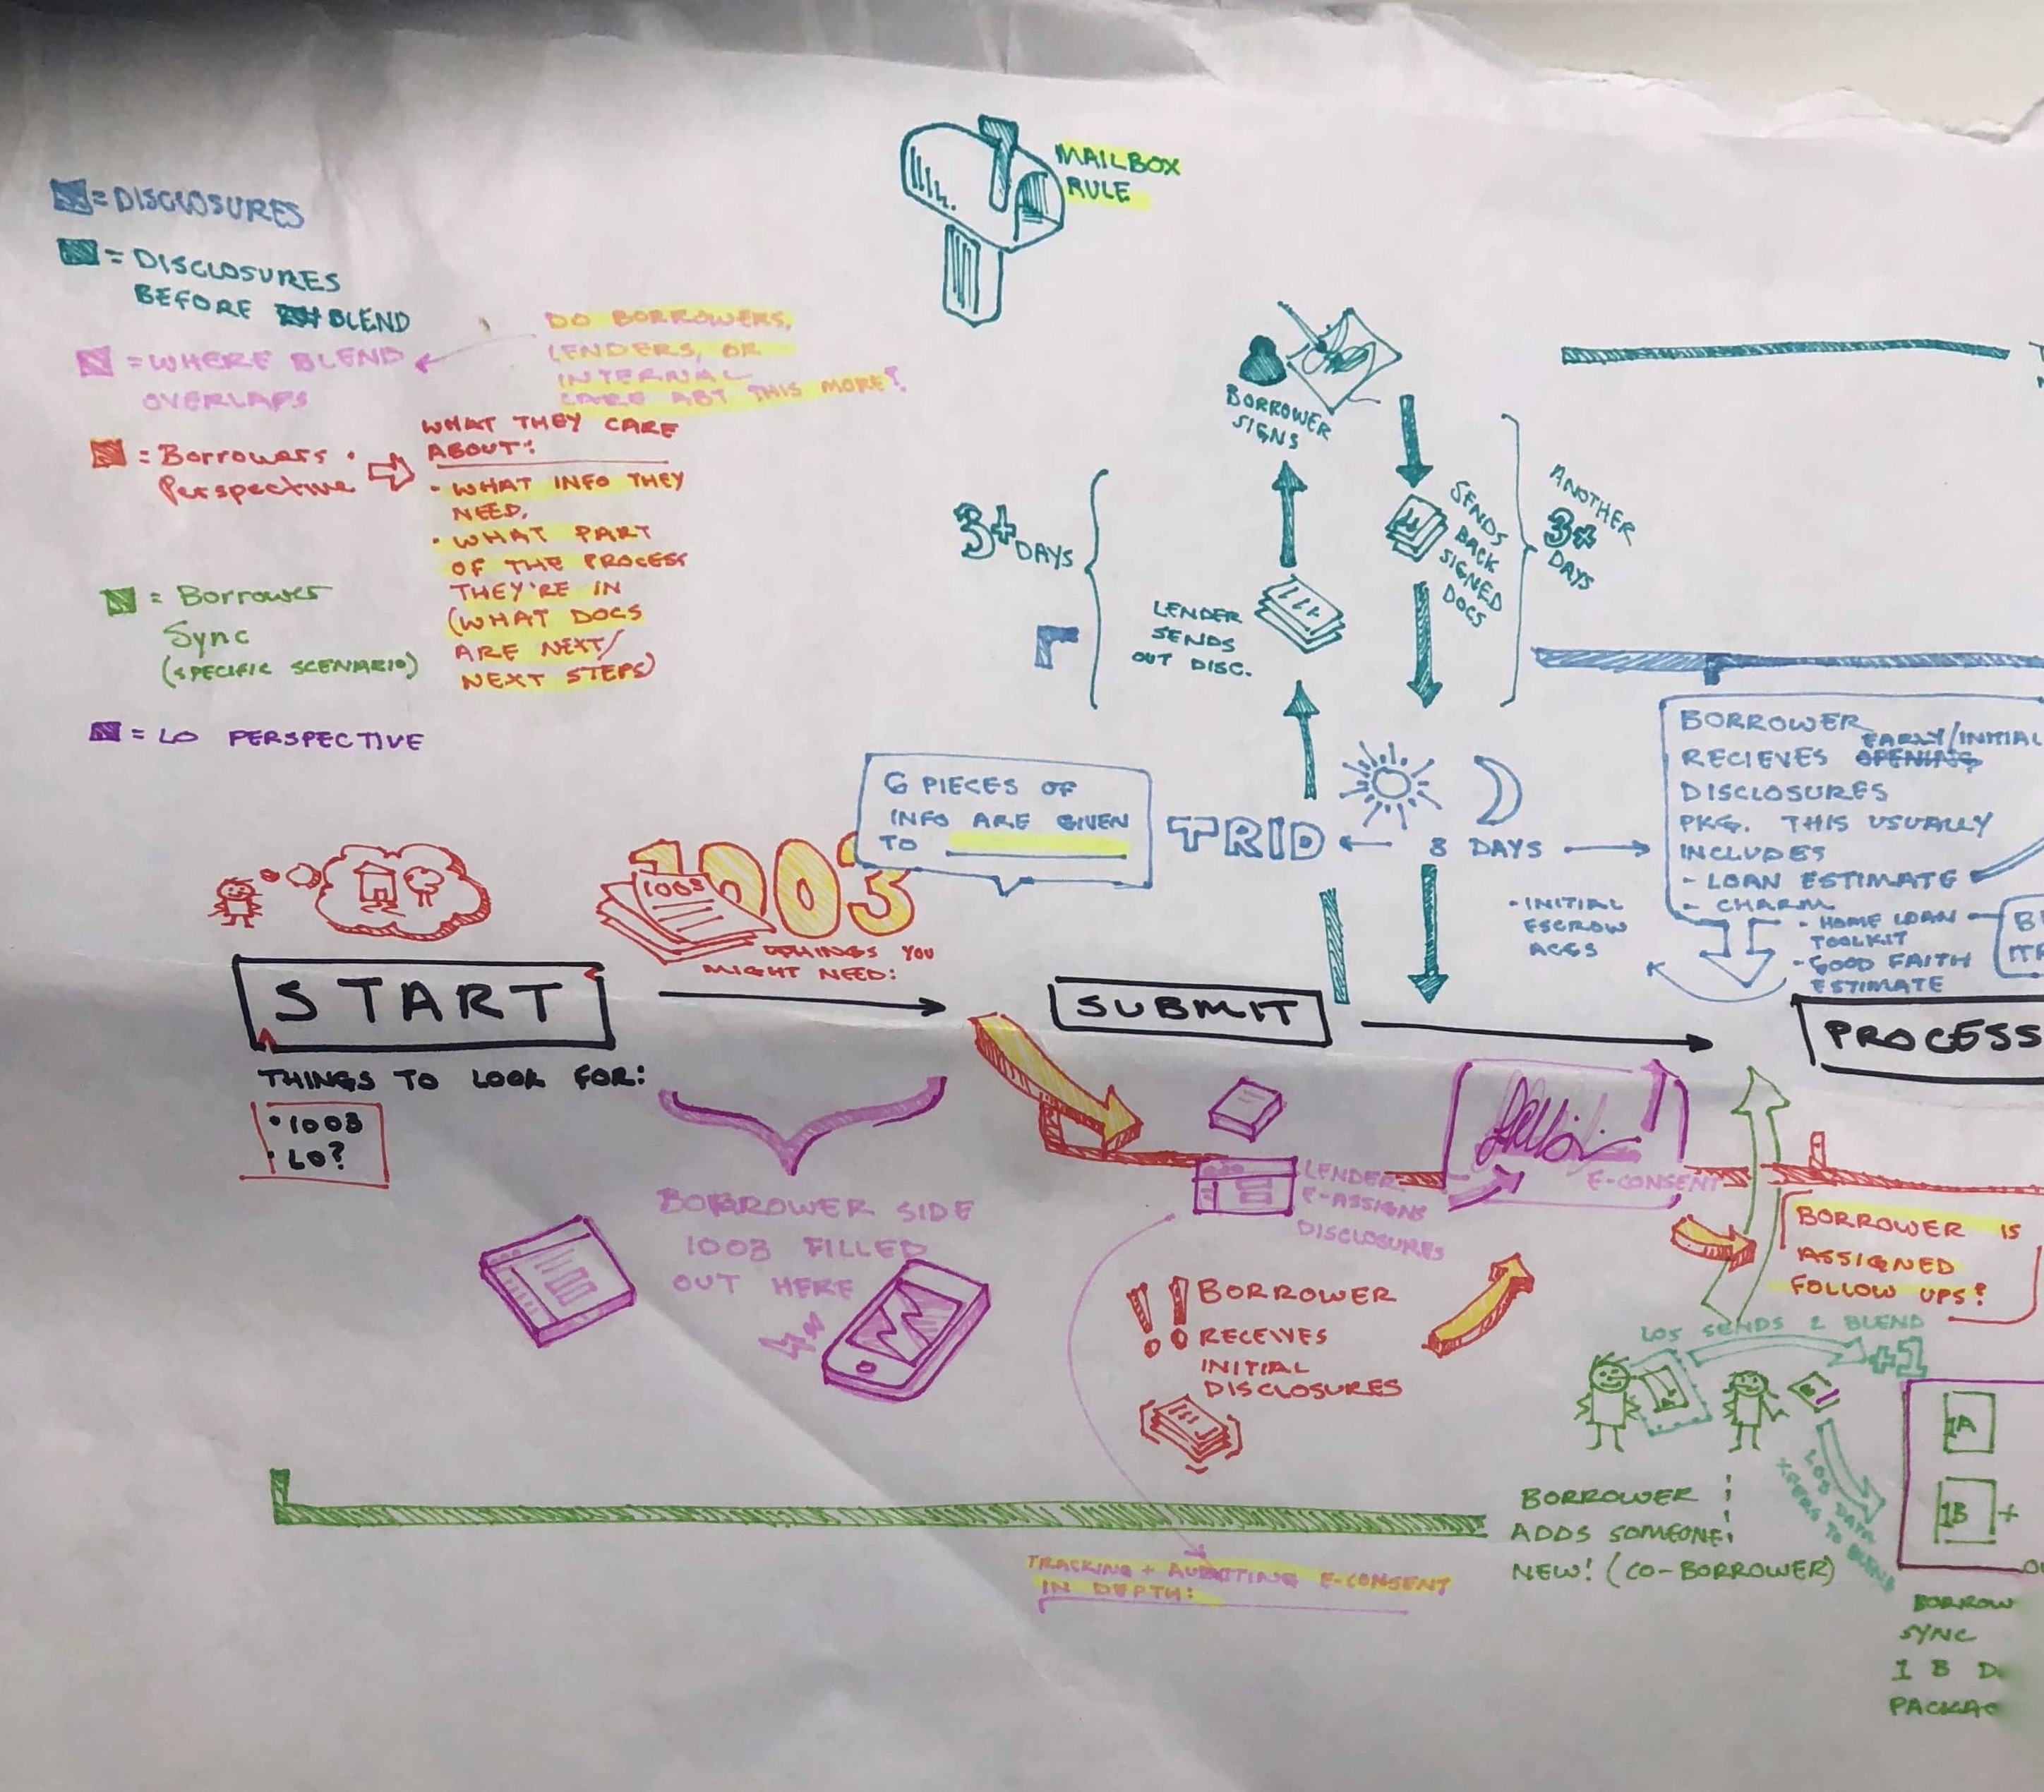 MAILBOX
RULE
= DISCLOSURES
= DISCLOSURES
BEFORE BLEND
= WHERE BLEND
OVERLAPS
DO BORROWERS,
LENDERS, OR
INTERNAL
CARE ABT THIS MORE?
= Borrowers
Perspective
WHAT THEY CARE
ABOUT:
- WHAT INFO THEY
NEED.
• WHAT PART
OF THE PROCESS
THEY'RE IN
(WHAT DOCS
ARE NEXT/
NEXT STEPS)
= Borrower
Sync
(SPECIFIC SCENARIO)
= LO PERSPECTIVE
BORROWER
SIGNS
3+ DAYS
LENDER
SENDS
OUT DISC.
SENDS
BACK
SIGNED
DOCS
ANOTHER
3+
DAYS
6 PIECES OF
INFO ARE GIVEN
TO
TRID
8 DAYS
- INITIAL
ESCROW
ACCS
BORROWER
RECIEVES EARLY/INITIAL
OPENING
DISCLOSURES
PKG. THIS USUALLY
INCLUDES
- LOAN ESTIMATE
- CHARM
- HOME LOAN
TOOLKIT
- GOOD FAITH
ESTIMATE
1003
1003
THINGS YOU
MIGHT NEED:
START
SUBMIT
PROCESS
THINGS TO LOOK FOR:
• 1003
• LO?
BORROWER SIDE
1003 FILLED
OUT HERE
LENDER
E-ASSIGNS
DISCLOSURES
E-CONSENT
!! BORROWER
RECEIVES
INITIAL
DISCLOSURES
BORROWER IS
ASSIGNED
FOLLOW UPS?
LOS SENDS 2 BLEND
+1
LOS DATA
XFERS TO BLEND
1A
1B +
BORROWER
ADDS SOMEONE
NEW! (CO-BORROWER)
TRACKING + AUDITING E-CONSENT
IN DEPTH:
BORROW
SYNC
1 B D
PACKAG